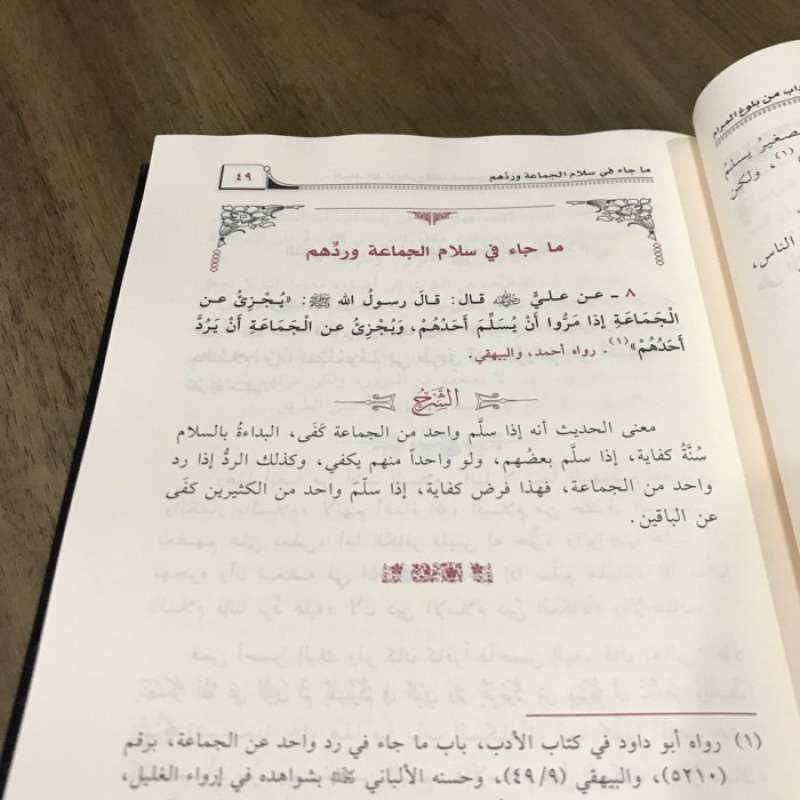 ما جاء في سلام الجماعة وردهم
٤٩
ما جاء في سلام الجماعة وردِّهم
٨ ـ عن عليٍّ رضي الله عنه قال: قالَ رسولُ الله ﷺ: «يُجْزِئُ عن
الْجَمَاعَةِ إذا مَرُّوا أَنْ يُسَلِّمَ أَحَدُهُمْ، وَيُجْزِئُ عن الْجَمَاعَةِ أَنْ يَرُدَّ
أَحَدُهُمْ»(١). رواه أحمد، والبيهقي.
الشَّرْحُ
معنى الحديث أنه إذا سلَّم واحد من الجماعة كَفَى، البداءةُ بالسلام
سُنَّةُ كفاية، إذا سلَّم بعضُهم، ولو واحداً منهم يكفي، وكذلك الردُّ إذا رد
واحد من الجماعة، فهذا فرض كفاية، إذا سلّمَ واحد من الكثيرين كفَى
عن الباقين.
(١) رواه أبو داود في كتاب الأدب، باب ما جاء في رد واحد عن الجماعة، برقم
(٥٢١٠)، والبيهقي (٤٩/٩)، وحسنه الألباني رحمه الله بشواهده في إرواء الغليل،
من بلوغ المرام
يسلّمُ
(١)، ولكن
الناس،